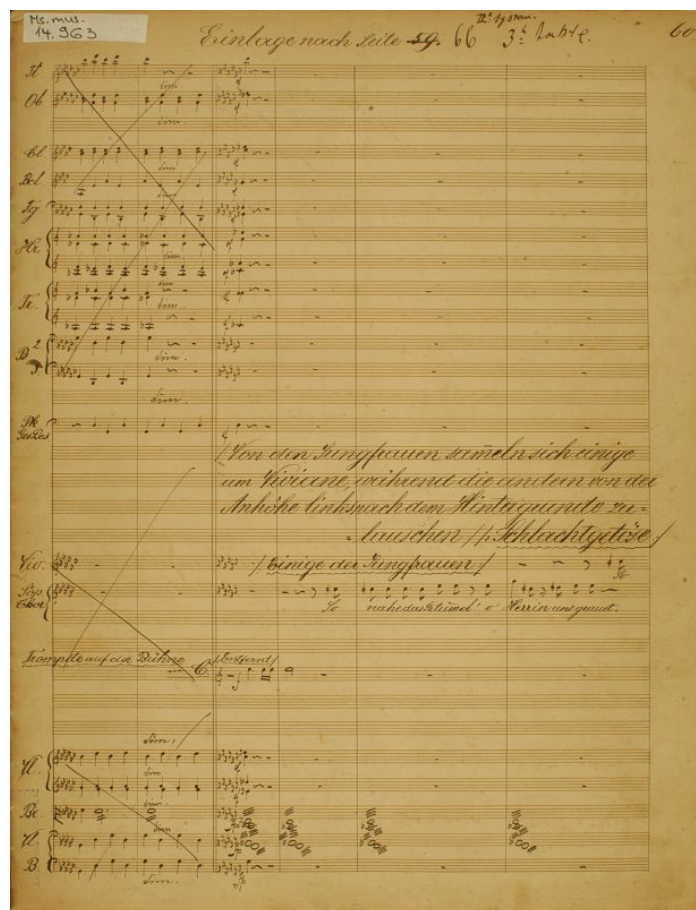 Ms. mus.
14.963
Einlage nach Seite 59. 66 3te
60
Fl
Ob
Cl
Bcl.
Fg
Hr.
Tr.
2.
3.
Pk
(Von den Jungfrauen sam̅eln sich einige
um Viviane, während die andern von der
Anhöhe links nach dem Hintergrunde zu=
=lauschen / (: Schlachtgetöse /
Viv. / Einige der Jungfrauen /
So
Sop.
Chor
So nahe das Getüm̅el! o Herrin uns graut.
Trompete auf der Bühne
/ Entfernt /
dim.
Vl.
dim.
Br.
dim.
Vl.
B.
dim.